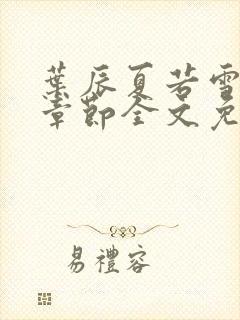 葉辰夏若雪
章節全文免
易禮容